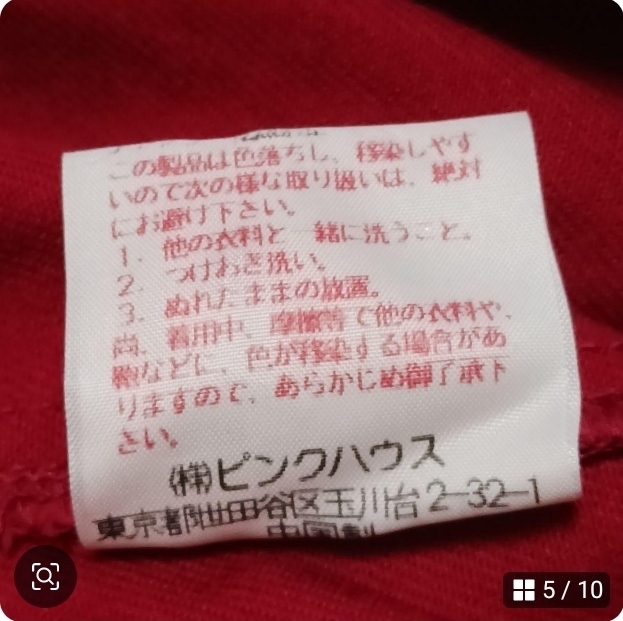 この製品は色落ちし、移染しやす
いので次の様な取り扱いは、絶対
にお避け下さい。
1. 他の衣料と一緒に洗うこと。
2. つけおき洗い。
3. ぬれたままの放置。
尚、着用中、摩擦等で他の衣料や、
鞄などに、色が移染する場合があ
りますので、あらかじめ御了承下
さい。
㈱ピンクハウス
東京都世田谷区玉川台2-32-1
中国製
5 / 10